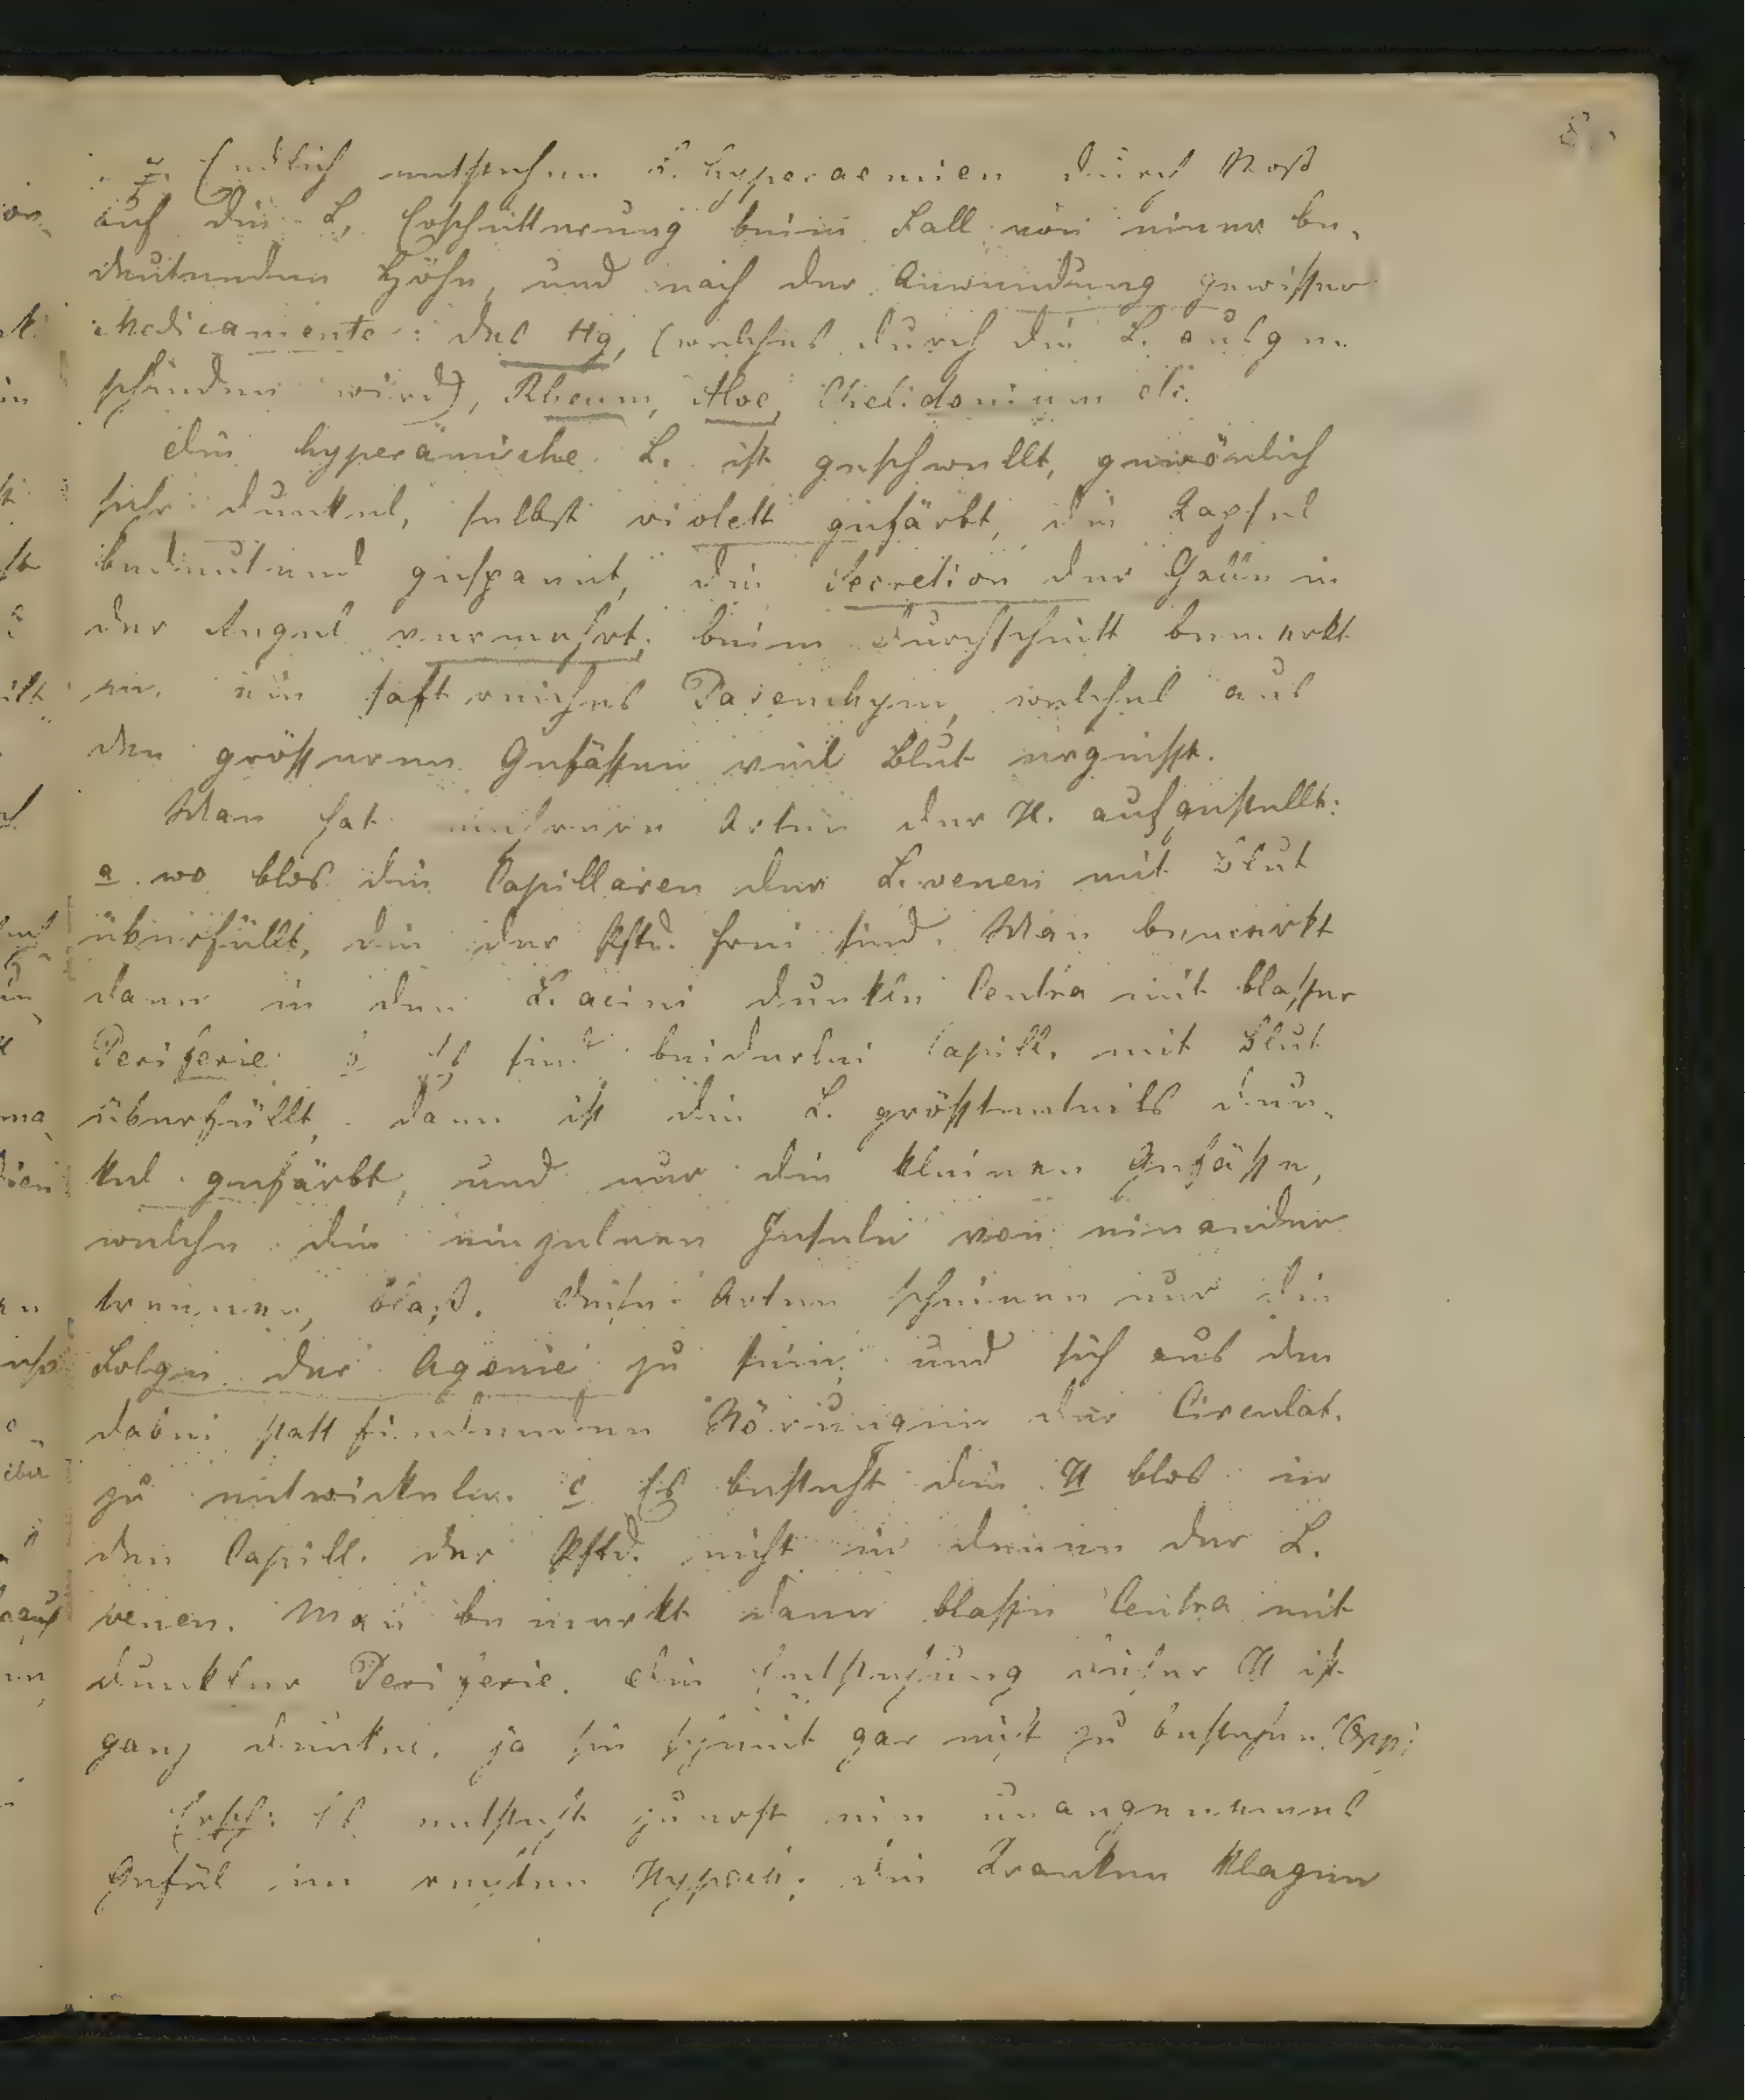 Endlich entstehen L. hyperaemien durch Stoß
auf die L, Erschütterung beim Fall von einer be-
deutenden Höhe, und nach der Anwendung gewisser
Medicamente: des Hg, (welches durch die L. ausge-
schieden wird), Rheum, Aloe, Chelidonium etc.
Die hyperämische L. ist geschwellt, gewönlich
sehr dunkel, selbst violett gefärbt, die Kapsel
bedeutend gespannt, die Secretion der Galle in
der Regel vermehrt; beim Durchschnitt bemerkt
m. ein saftreiches Parenchym, welches aus
den grösseren Gefässen viel Blut ergiesst.
Man hat mehrere Arten der H. aufgestellt:
a. wo blos die Capillaren der L. venen mit Blut
überfüllt, die der Pftd. frei sind. Man bemerkt
dann in den L. acini dunkle Centra mit blasser
Periferie. b Es sind beiderlei Capill. mit Blut
überfüllt, dann ist die L. grösstenteils dun-
kel gefärbt, und nur die kleinen Gefässe,
welche die einzelnen Inseln von einander
trennen, blaß. Diese Arten scheinen nur die
Folgen der Agonie zu sein, und sich aus den
dabei stattfindenden Störungen der Circulat.
zu entwickeln. c Es besteht die H blos in
den Capill. der Pftd. nicht in denen der L.
venen. Man bemerkt dann blasse Centra mit
dunkler Periferie. Die Entstehung dieser H ist
ganz dunkel, ja sie scheint gar nicht zu bestehen. Opp:
Ersch: Es entsteht zuerst ein unangenemes
Gefül im rechten Hypoch; die Kranken klagen